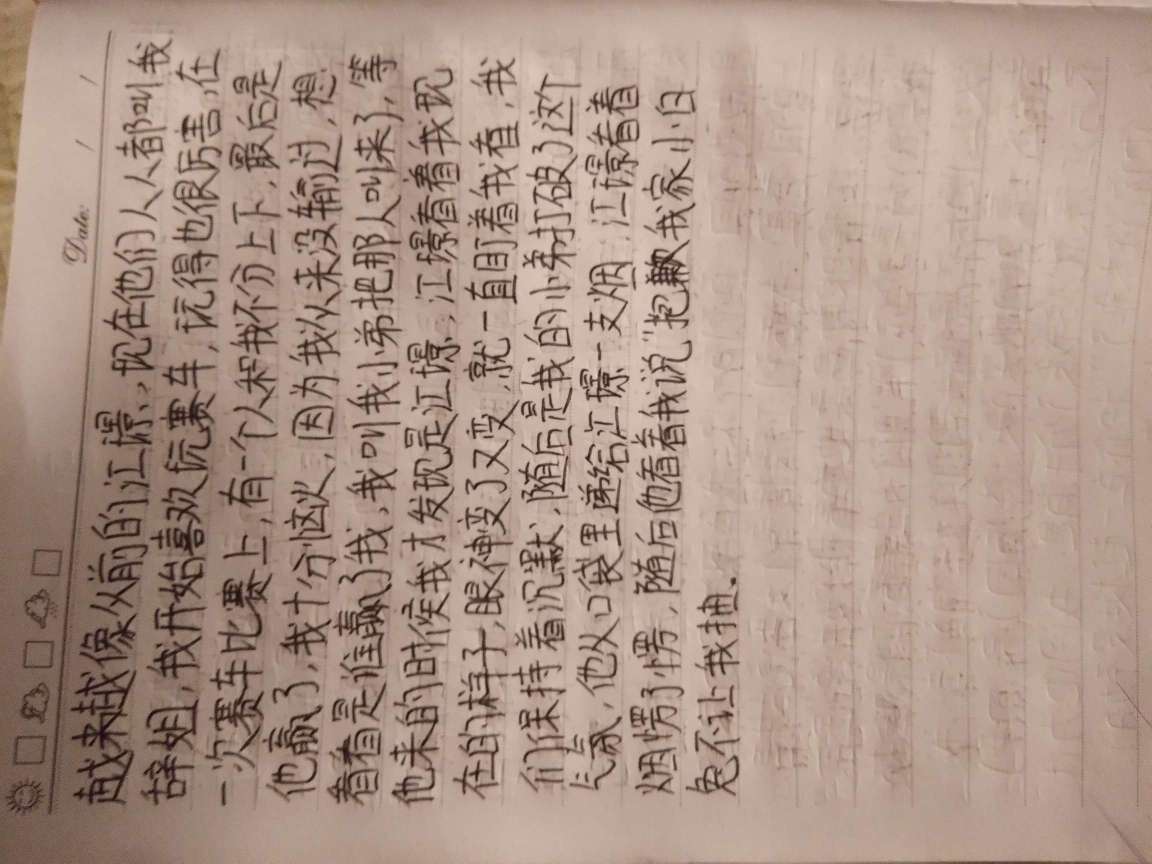 Date: / /
越来越像从前的江璟,现在他们人人都叫我
辞姐,我开始喜欢玩赛车,玩得也很厉害,在
一次赛车比赛上,有一个人和我不分上下,最后是
他赢了,我十分恼火,因为我从来没输过,想
看看是谁赢了我,我叫我小弟把那人叫来了,等
他来的时侯我才发现是江璟,江璟看着我现
在的样子,眼神变了又变,就一直盯着我看,我
们保持着沉默,随后是我的小弟打破了这个
气氛,他从口袋里递给江璟一支烟,江璟看着
烟愣了愣,随后他看着我说"抱歉我家小白
兔不让我抽.